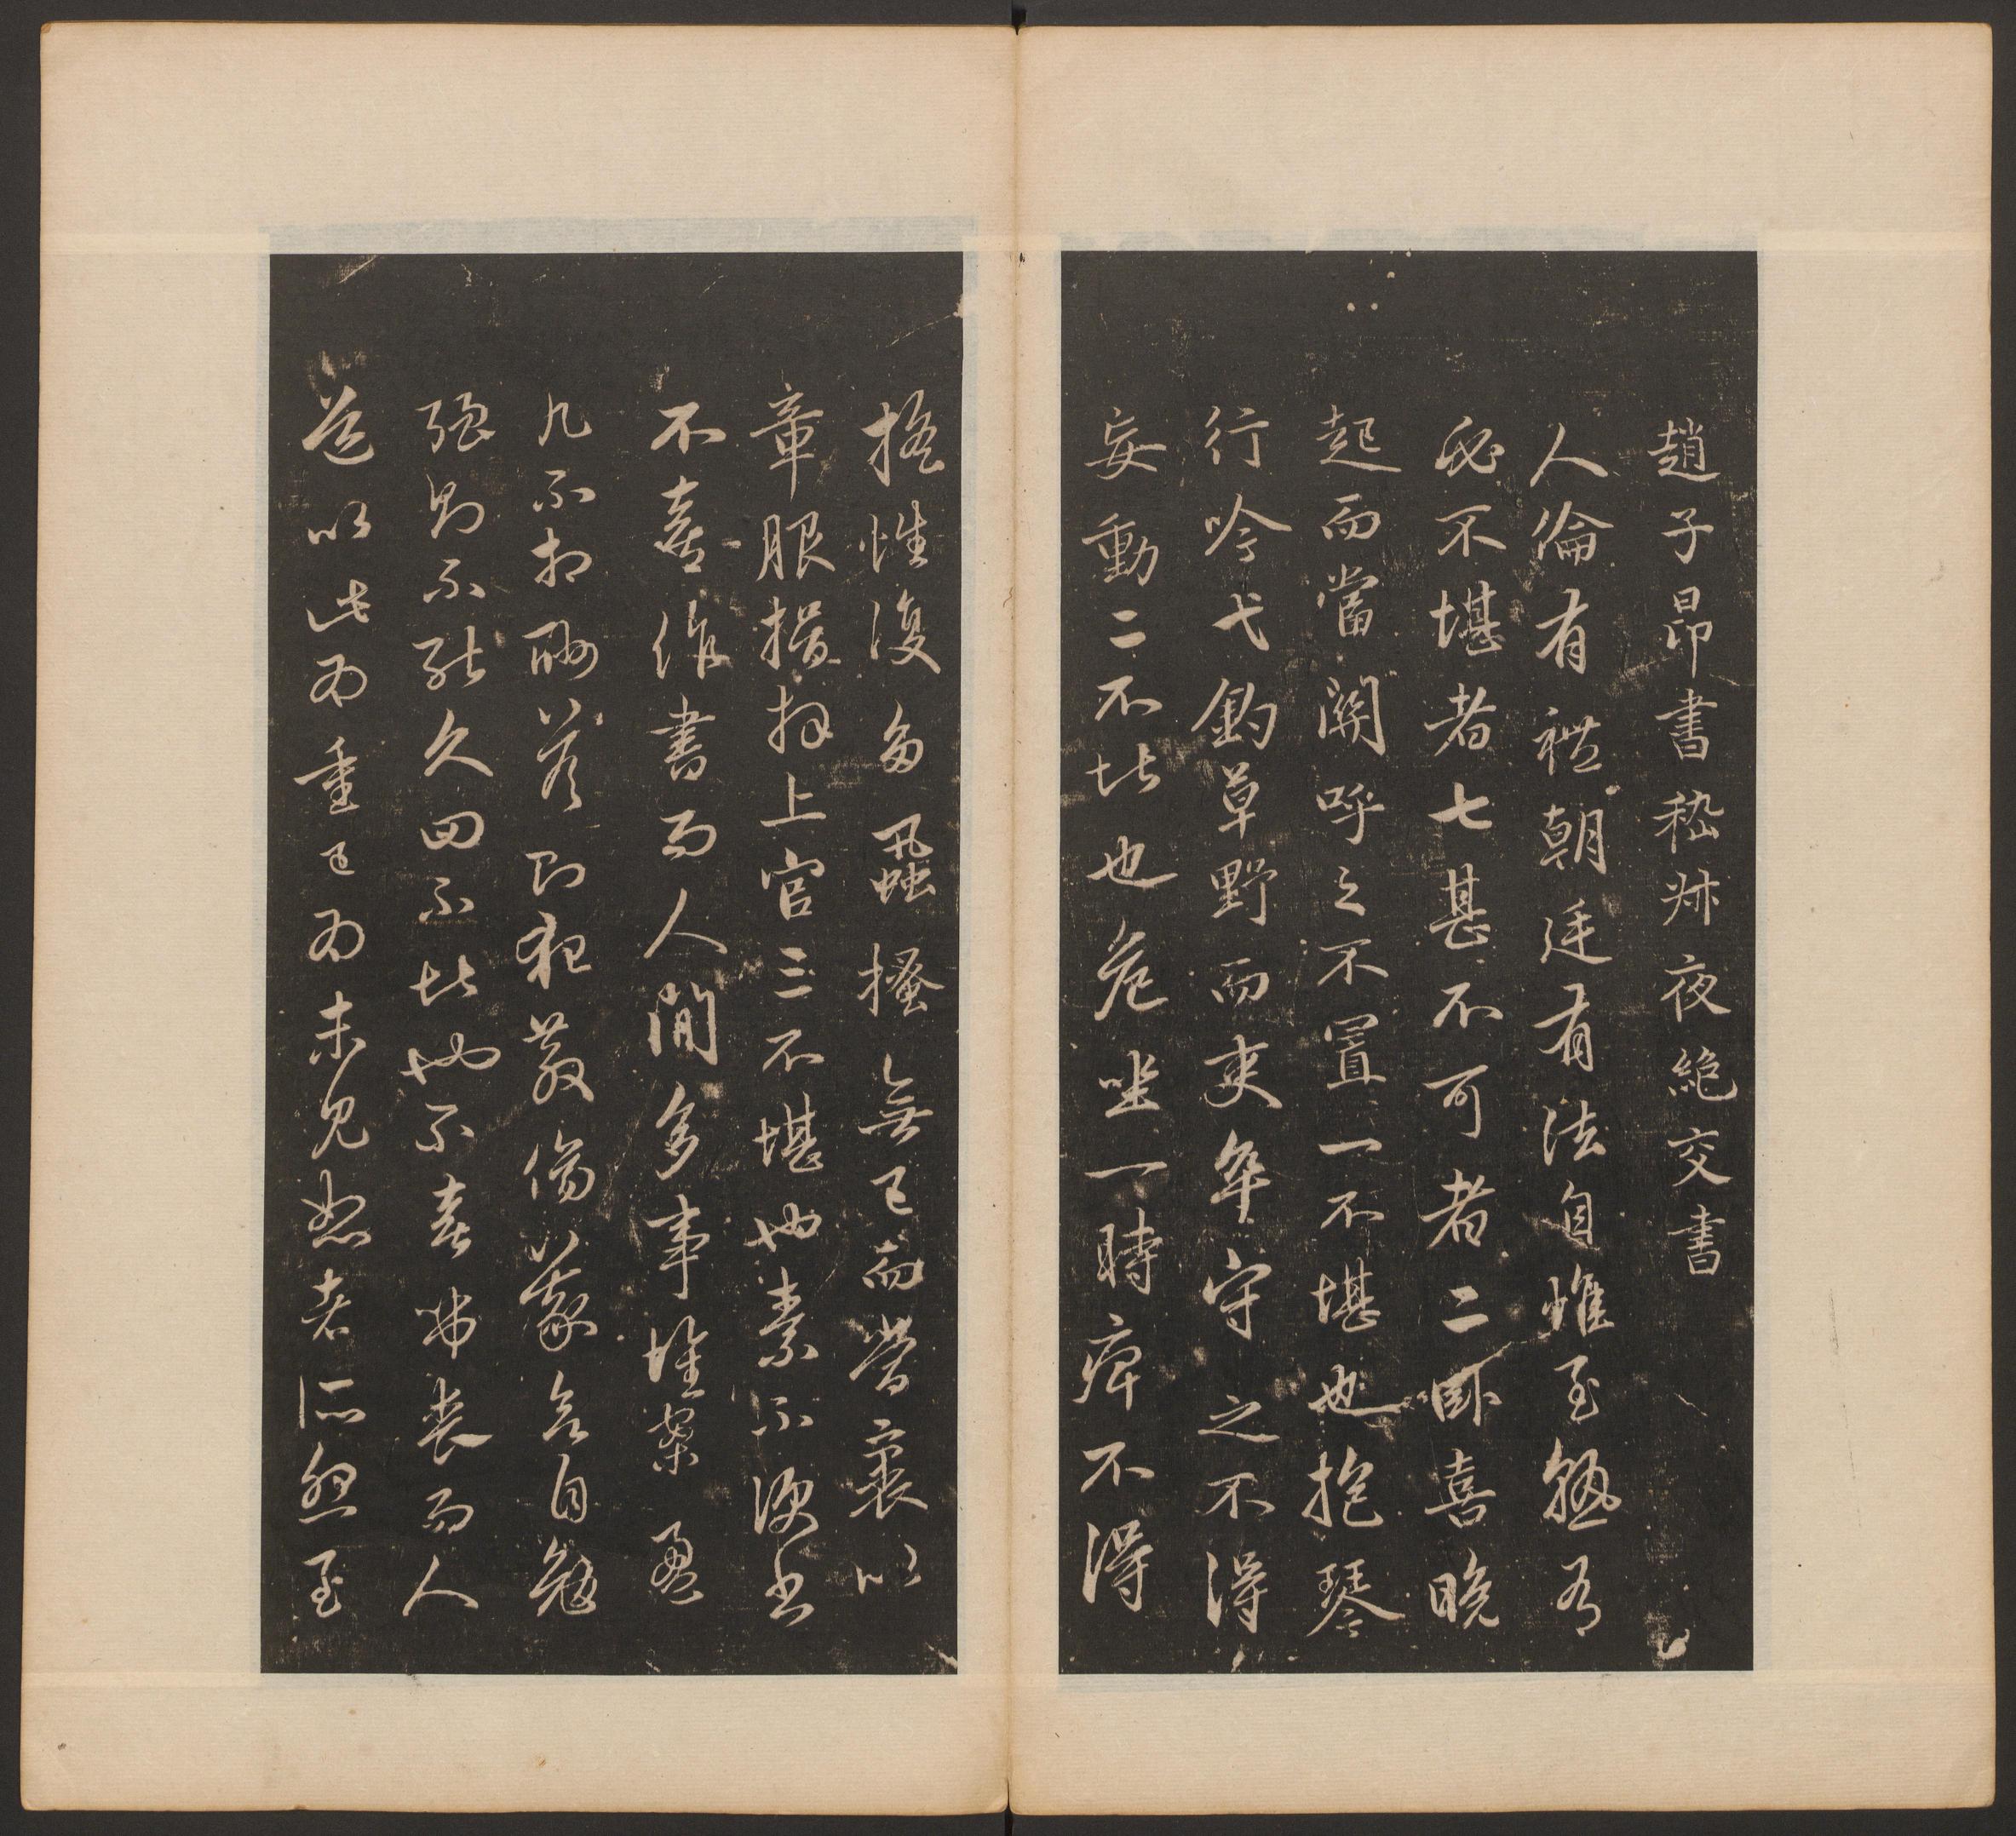 趙子昂書嵇叔夜絕交書
人倫有禮朝廷有法自惟至熟有
必不堪者七甚不可者二卧喜晚
起而當關呼之不置一不堪也抱琴
行吟弋釣草野而吏卒守之不得
妄動二不堪也危坐一時痺不得
搖性復多蝨搔無已而當裹以
章服揖拜上官三不堪也素不便書
不喜作書而人間多事堆案盈
几不相酬答則犯教傷義欲自勉
強則不能久四不堪也不喜弔喪而人
道以此為重已為未見恕者所怨至